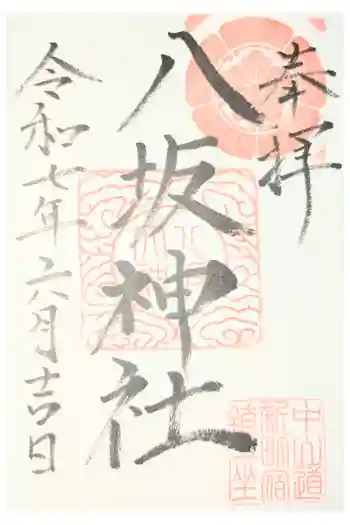 奉拝
八坂神社
令和七年六月吉日
中山道
新町宿
鎮坐